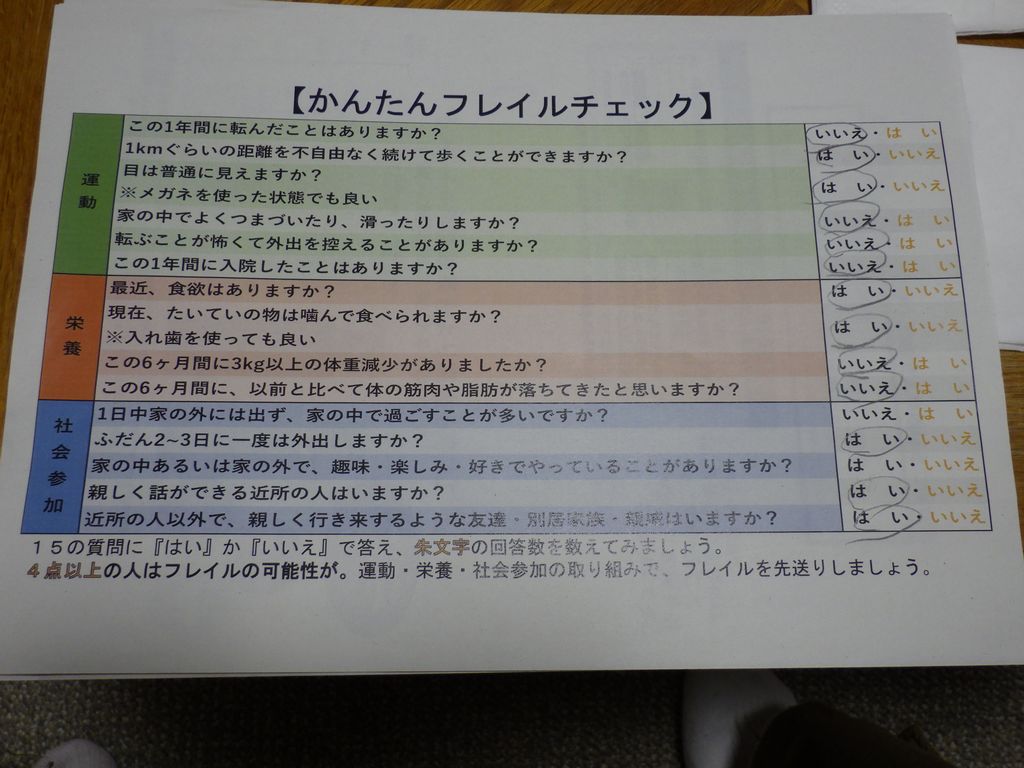 【かんたんフレイルチェック】
運動
この1年間に転んだことはありますか? いいえ・は い
1kmぐらいの距離を不自由なく続けて歩くことができますか? は い・いいえ
目は普通に見えますか?
※メガネを使った状態でも良い は い・いいえ
家の中でよくつまづいたり、滑ったりしますか? いいえ・は い
転ぶことが怖くて外出を控えることがありますか? いいえ・は い
この1年間に入院したことはありますか? いいえ・は い
栄養
最近、食欲はありますか? は い・いいえ
現在、たいていの物は噛んで食べられますか?
※入れ歯を使っても良い は い・いいえ
この6ヶ月間に3kg以上の体重減少がありましたか? いいえ・は い
この6ヶ月間に、以前と比べて体の筋肉や脂肪が落ちてきたと思いますか? いいえ・は い
社会参加
1日中家の外には出ず、家の中で過ごすことが多いですか? いいえ・は い
ふだん2~3日に一度は外出しますか? は い・いいえ
家の中あるいは家の外で、趣味・楽しみ・好きでやっていることがありますか? は い・いいえ
親しく話ができる近所の人はいますか? は い・いいえ
近所の人以外で、親しく行き来するような友達・別居家族・親戚はいますか? は い・いいえ
15の質問に『はい』か『いいえ』で答え、朱文字の回答数を数えてみましょう。
4点以上の人はフレイルの可能性が。運動・栄養・社会参加の取り組みで、フレイルを先送りしましょう。